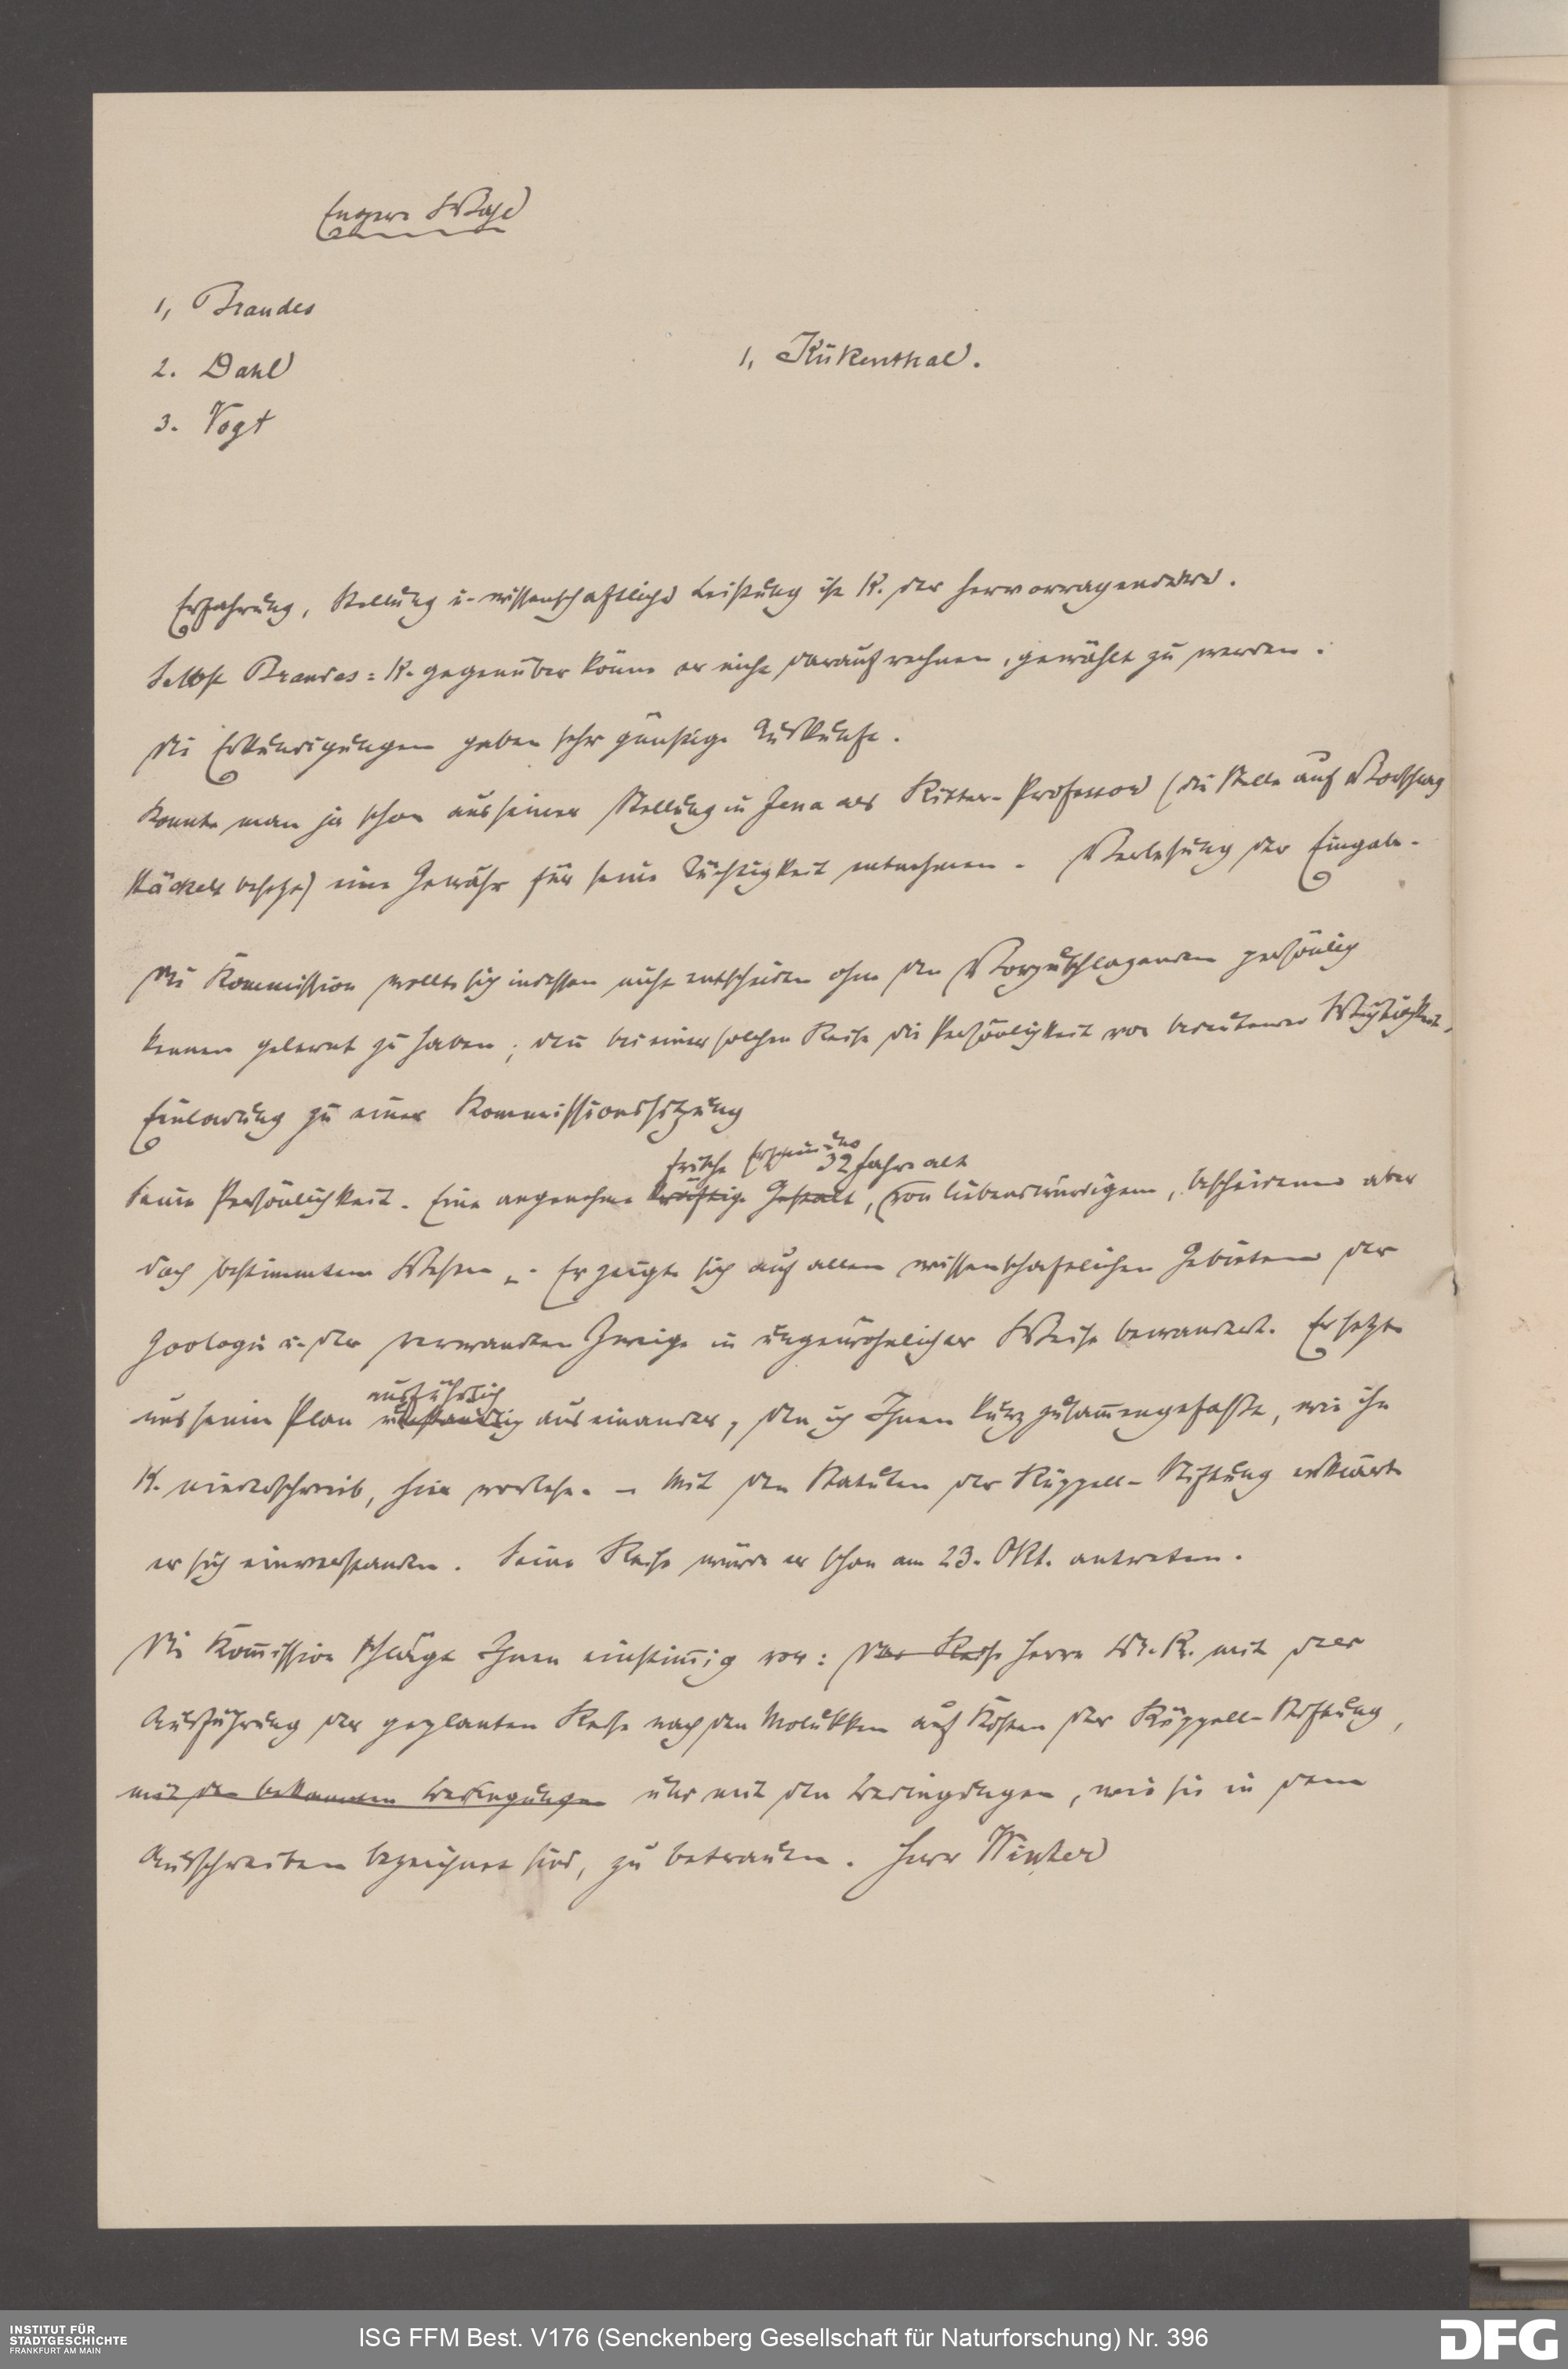 Engere Wahl
1, Brandes
2. Dahl
3. Vogt
1, Kükenthal.
Erfahrung, Stellung u. wissenschaftliche Leistung ist K. der hervorragendere.
Selbst Brandes: K. gegenüber könne er nicht darauf rechnen, gewählt zu werden.
Die Erkundigungen gaben sehr günstige Auskunft.
Konnte man ja schon aus seiner Stellung in Jena als Ritter-Professor (die Stelle auf Vorschlag
Häckels besetzt) eine Gewähr für seine Tüchtigkeit entnehmen. Verlesung der Eingabe.
Die Kommission wollte sich indessen nicht entscheiden ohne den Vorzuschlagenden persönlich
kennen gelernt zu haben; denn bei einer solchen Reise die Persönlichkeit von bedeutender Wichtigkeit.
Einladung zu einer Kommissionssitzung
frische Erscheinung 32 Jahre alt
Seine Persönlichkeit. Eine angenehme kräftige Gestalt, von liebenswürdigem, bescheidenem aber
doch bestimmtem Wesen. Er zeigte sich auf allen wissenschaftlichen Gebieten der
Zoologie u. der verwandten Zweige in ungewöhnlicher Weise bewandert. Er setzte
ausführlich
uns seinen Plan umständlich auseinander, den ich Ihnen kurz zusammengefaßt, wie ihn
K. niederschrieb, hier vorlese. – Mit den Statuten der Rüppell-Stiftung erklärte
er sich einverstanden. Seine Reise würde er schon am 23. Okt. antreten.
Die Kommission schlägt Ihnen einstimmig vor: Herrn Dr. K. mit der
Ausführung der geplanten Reise nach den Molukken auf Kosten der Rüppell-Stiftung,
mit den bekannten Bedingungen und mit den Bedingungen, wie sie in dem
Ausschreiben bezeichnet sind, zu betrauen. Herr Winter
INSTITUT FÜR
STADTGESCHICHTE
FRANKFURT AM MAIN
ISG FFM Best. V176 (Senckenberg Gesellschaft für Naturforschung) Nr. 396
DFG